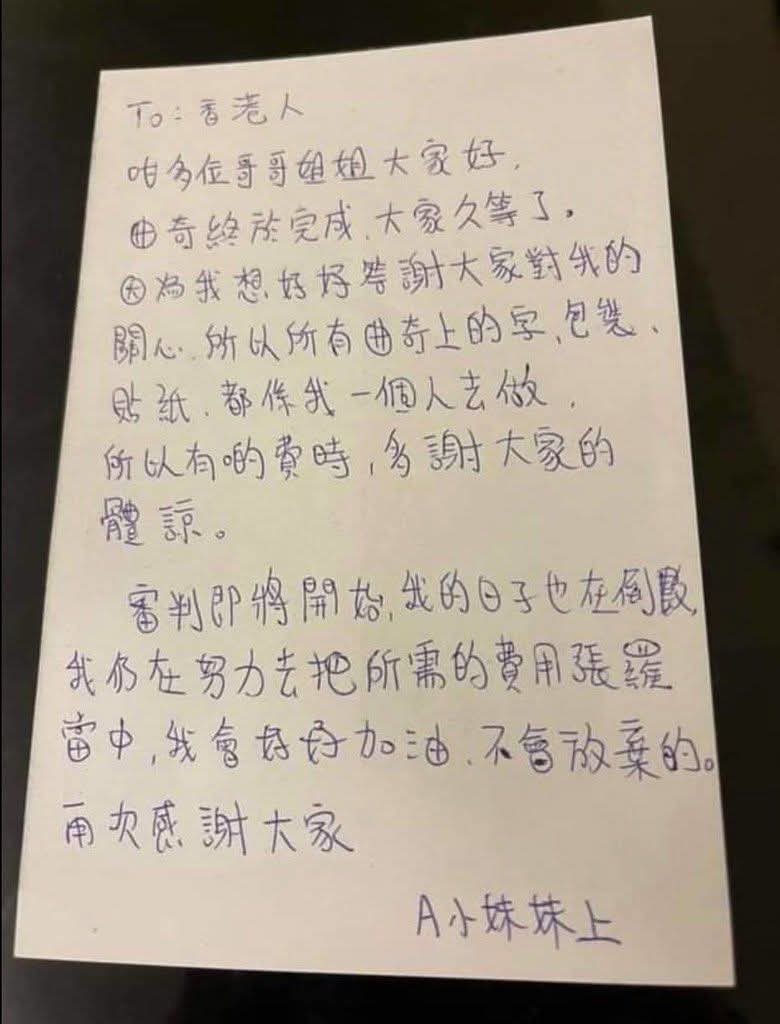 To：香港人
咁多位哥哥姐姐大家好，
曲奇終於完成、大家久等了。
因為我想好好答謝大家對我的
關心、所以所有曲奇上的字、包裝、
貼紙、都係我一個人去做，
所以有啲費時，多謝大家的
體諒。
審判即將開始，我的日子也在倒數，
我仍在努力去把所需的費用張羅
當中，我會好好加油、不會放棄的。
再次感謝大家
A小妹妹上